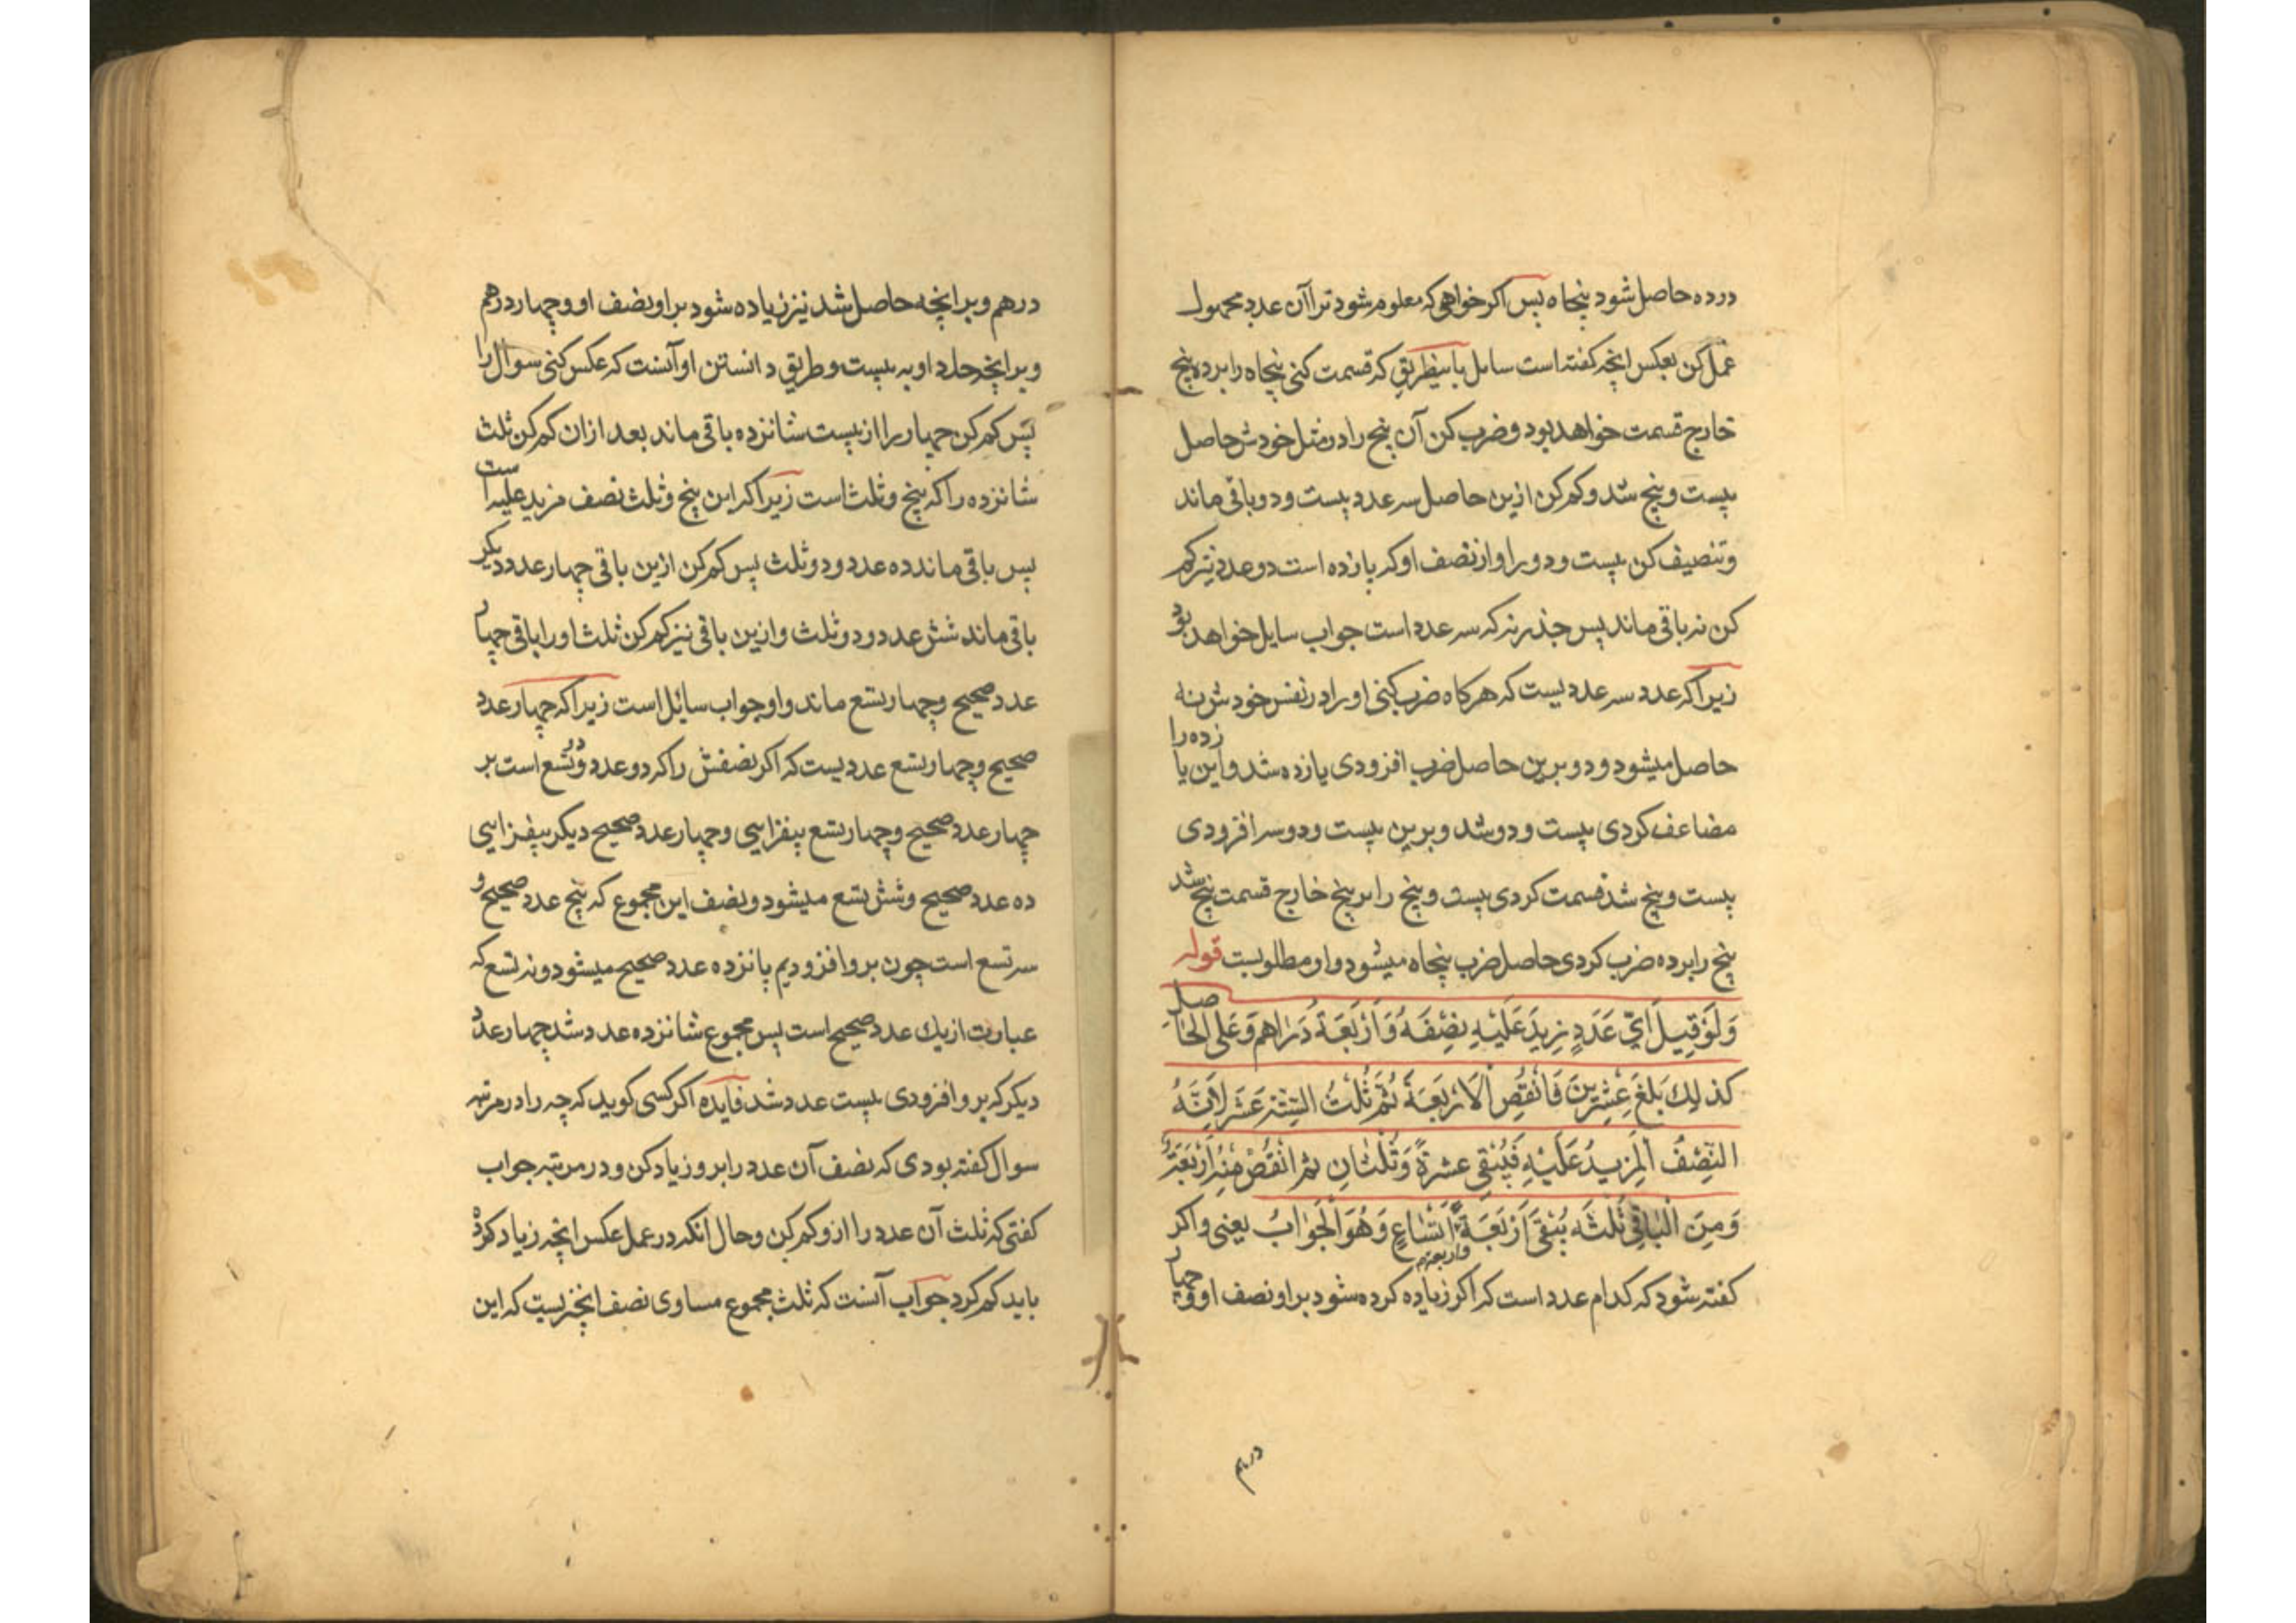 درده حاصل شود پنجاه پس اکر خواهی که معلوم شود ترا آن عدد مجهول
عمل کن بعکس انچه کفته است سایل باینطریق که قسمت کنی پنجاه را برده پنج
خارج قسمت خواهد بود و ضرب کن آن پنج را در مثل خودش حاصل
بیست و پنج شد و کم کن ازین حاصل سه عدد بیست و دو باقی ماند
و تنصیف کن بیست و دو را و از نصف او که یازده است دو عدد نیز کم
کن نه باقی ماند پس جذر نه که سه عدد است جواب سایل خواهد بود
زیراکه عدد سه عددیست که هرکاه ضرب کنی او را در نفس خودش نه
حاصل میشود و دو برین حاصل ضرب افزودی یازده شد و این یازده را
مضاعف کردی بیست و دو شد و برین بیست و دو سه افزودی
بیست و پنج شد قسمت کردی بیست و پنج را بر پنج خارج قسمت پنج شد
پنج را برده ضرب کردی حاصل ضرب پنجاه میشود و او مطلوبست قوله
وَلَوْ قِيلَ اَيُّ عَدَدٍ زِيدَ عَلَيْهِ نِصْفَهُ وَاَرْبَعَةُ دَرٰاهِم وَعَلَى الْحٰاصِلِ
كذلِكَ بَلَغَ عِشْرِينَ فَانْقُصِ الْاَرْبَعَةَ ثُمَّ ثُلْثُ السِّتَّةَ عَشَرَ لِاَنَّهُ
النِّصْفُ الْمَزِيدُ عَلَيْهِ فَيُبْقى عشرةً وَثُلْثٰانِ ثم انْقُصْ مِنْهُ اَرْبَعَةً
وَمِنَ الْبٰاقِي ثُلْثَه يُبْقىٰ اَرْبَعَةٌ واربعة اَتْسٰاعٍ وَهُوَ الْجَوٰابُ يعنى و اکر
کفته شود که کدام عدد است که اکر زیاده کرده شود بر او نصف او و چهار
درهم
درهم و بر انچه حاصل شد نیز زیاده شود بر او نصف او و چهار درهم
و بر انچه حل داو به بیست و طریق دانستن او آنست که عکس کنی سوال را
پس کم کن چهار را از بیست شانزده باقی ماند بعد ازان کم کن ثلث
شانزده را که پنج و ثلث است زیراکه این پنج و ثلث نصف مزید علیه است
پس باقی مانده ده عدد و دو ثلث پس کم کن ازین باقی چهار عدد دیکر
باقی ماند شش عدد و دو ثلث و ازین باقی نیز کم کن ثلث او را باقی چهار
عدد صحیح و چهار تسع ماند و او جواب سائل است زیراکه چهار عدد
صحیح و چهار تسع عددیست که اکر نصفش را که دو عدد و دو تسع است بر
چهار عدد صحیح و چهار تسع بیفزایی و چهار عدد صحیح دیکر بیفزایی
ده عدد صحیح و شش تسع میشود و نصف این مجموع که پنج عدد صحیح و
سه تسع است چون بر و افزودیم پانزده عدد صحیح میشود و نه تسع که
عبارت از یك عدد صحیح است پس مجموع شانزده عدد شد چهار عدد
دیکر که بر و افزودی بیست عدد شد فایده اکر کسی کوید که چه را در مرتبه
سوال کفته بودی که نصف آن عدد را بر و زیاد کن و در مرتبه جواب
کفتی که ثلث آن عدد را ازو کم کن و حال انکه در عمل عکس انچه زیاد کرده
باید کم کرد جواب آنست که ثلث مجموع مساوی نصف انچیزیست که این